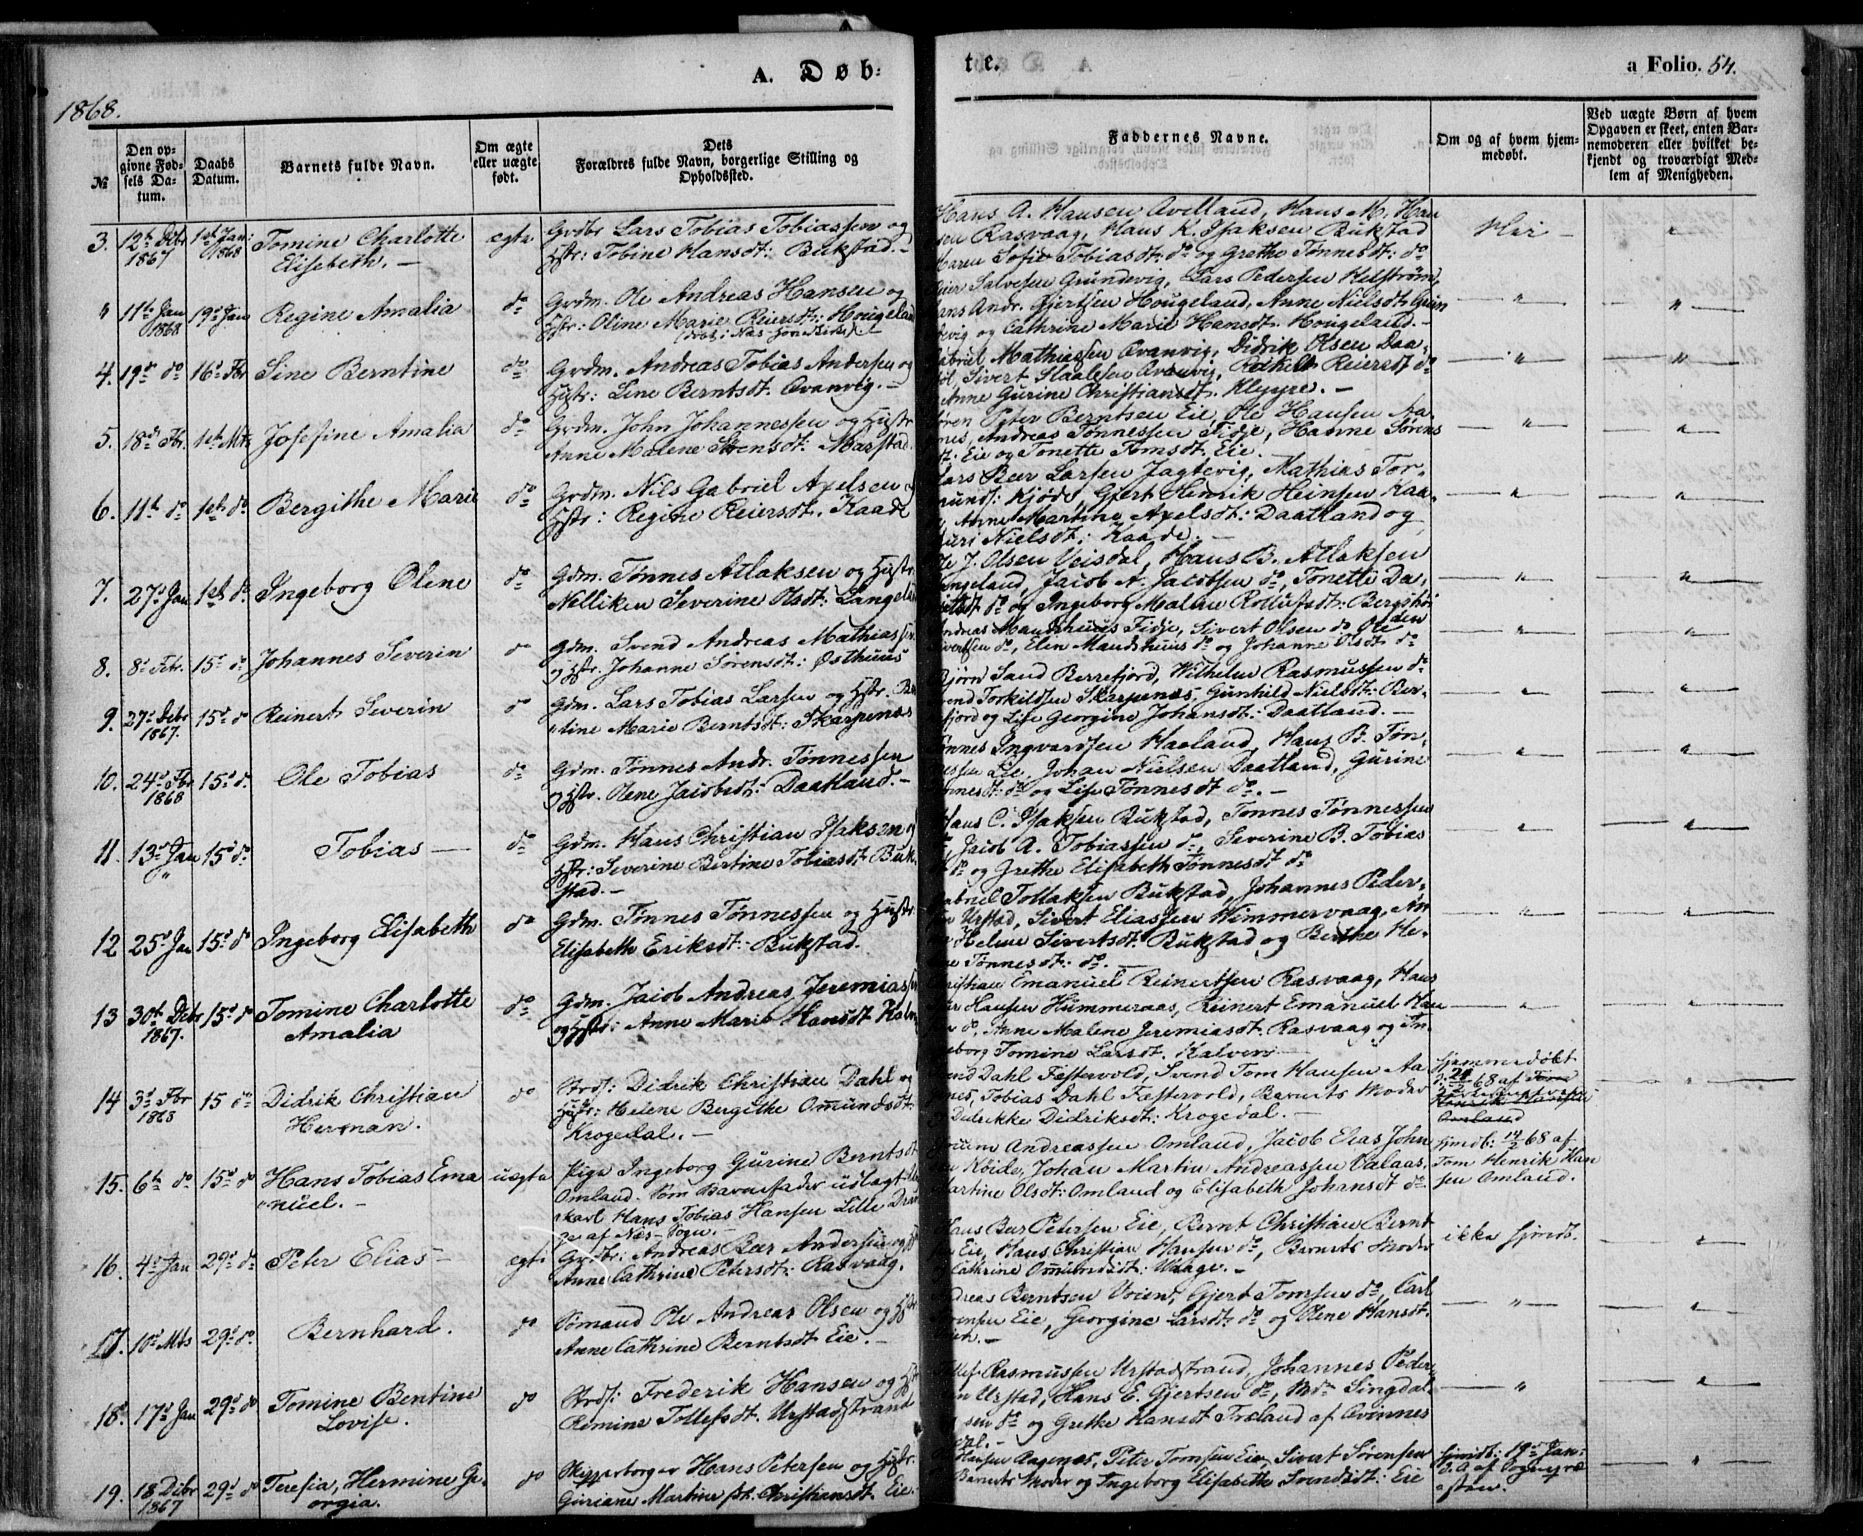 1868.
A. Døb-
te.
a Folio. 54.
№
Den op-
givne Fød-
sels Da-
tum.
Daabs
Datum.
Barnets fulde Navn.
Om ægte
eller uægte
født.
Dets
Forældres fulde Navn, borgerlige Stilling og
Opholdssted.
Faddernes Navne.
Om og af hvem hjem-
medøbt.
Ved uægte Børn af hvem
Opgaven er skeet, enten Bar-
nemoderen eller hvilket be-
kjendt og troværdigt Med-
lem af Menigheden.
3. 12te Dcbr 1867 1ste Jan: 1868 Tomine Charlotte
Elisabeth. —
ægte
Grdbr Lars Tobias Tobiassen og
Hstr: Tobine Hansdt: Bukstad. —
Hans A. Hansen Avilland, Hans M. Han
sen Rasvaag, Hans K. Isaksen Bukstad
Maren Sofie Tobiasdt: do og Grethe Tønnesdt: do
" 11te Jan 1868 19de Jan Regine Amalia
do
Grdm. Ole Andreas Hansen og
Hstr: Oline Marie Reiersdt: Hougeland
Reier Salvesen Grundevig, Lars Pedersen Helstrøm,
Hans Andr. Gjertsen Hougeland, Anne Nielsdt: Grun
devig og Cathrine Marie Hansdt. Hougeland. —
4. 19de do 16de Fbr Sine Berntine
do
Grdm. Andreas Tobias Andersen og
Hstr: Line Berntsdt: Qvanvig. —
Gabriel Mathiassen Qvanvig, Didrik Olsen Daa-
Sivert Slaalesen Qvanvig, Rakel Reiersdt do
Anne Gurine Christiansdt. —
5. 18de Fbr. 1ste Mts Josefine Amalia
do
Grdm. John Johannessen og Hustr
Anne Malene Stensdt: Marstad.
Søren Peter Berntsen Eie, Ole Hansen Aa-
nes, Andreas Tønnessen Fidje, Hanne Sørens
dt. Eie og Tonette Tomsdt. Eie.
6. 11te do 1ste do Bergithe Marie
do
Grdm. Nils Gabriel Axelsen og
Hstr: Regine Reiersdt. Kaade
Lars Beer Larsen Jagtevig, Mathias Tor-
Kjøde, Gjert Henrik Heinsen Kaa-
de, Anne Martine Axelsdt: Daatland og
Guri Nielsdt: Kaade. —
7. 27de Jan 1ste do Ingeborg Olene
do
Gdm. Tønnes Atlaksen og Hustr:
Nilliken Severine Olsdt: Langeland
Ole J. Olsen Veisdal, Hans B. Atlaksen
Langeland, Jacob A. Jacobsen do, Tonette Da-
do og Ingeborg Malene
8. 8de Fbr. 15de do Johannes Severin
do
Gdm. Svend Andreas Mathiassen
og Hstr. Johanne Sørensdt: Østhuus
Andreas Maudshuus Fidje, Sivert Olsen do Ole
Sivertsen do, Elen Maudshuus do og Johanne Olsdt do
9. 27de Dcbr 1867. 15de do Reinert Severin
do
Gdm. Lars Tobias Larsen og Hstr. Ber
ntine Marie Berntsdt: Skarpenæs
Bjørn Sand Berrefjord, Wilhelm Rasmussen do
Svend Torkildsen Skarpenæs, Gunhild Nielsdt: Ber-
refjord og Lise Georgine Johansdt: Daatland. —
10. 24de Fbr 1868 15de do. Ole Tobias
do
Gdm. Tønnes Andr. Tønnessen
og Hstr. Olene Jacobsdt: Daatland. —
Tønnes Ingvardsen Haaland, Hans B. Tøn-
nessen Eie, Johan Nielsen Daatland, Gurine
Tønnesdt: do og Lise Tønnesdt do. —
11. 13de Jan 15de do Tobias —
do
Gdm. Hans Christian Isaksen og
Hstr: Severine Bertine Tobiasdt Buk
stad. —
Hans C. Isaksen Bukstad, Tønnes Tønnessen
do, Jacob A. Tobiassen do, Severine B. Tobias
dt do og Grethe Elisabeth Tønnesdt do
12 25de Jan 15de do Ingeborg Elisabeth
do
Gdm. Tønnes Tønnessen og Hustr:
Elisabeth Eriksdt: Bukstad.
Gabriel Tollaksen Bukstad, Johannes Peder-
sen Urstad, Sivert Eliassen Himmervaag, An
ne Helene Sivertsdt: Bukstad og Berthe He-
ne Tønnesdt: do. —
13 30te Dcbr 1867. 15de do Tomine Charlotte
Amalia
do
Gdm. Jacob Andreas Jeremiassen
og Hstr: Anne Marie Hansdt Kalven
Christian Emanuel Reinertsen Rasvaag, Hans
Hansen Himmeraas, Reinert Emanuel Han
sen do, Anne Malene Jeremiasdt. Rasvaag og In-
geborg Tomine Larsdt. Kalven —
14 3de Fbr 1868 15 do Didrik Christian
Herman.
do
Strds: Didrik Christian Dahl og
Hustr: Helene Bergithe Omundsdt:
Krogedal. —
Svend Dahl Fastervold, Svend Tom Hansen Aa
nes, Tobias Dahl Fastervold, Barnets Moder
Didrikke Didriksdt: Krogedal. —
hjemmedøbt
15. 6te do 15de do Hans Tobias Ema
nuel. —
uægte
Pige Ingeborg Gurine Berntsdt
Omland. Som Barnefader udlagt Un
gkarl Hans Tobias Hansen Lille Dran
ge af Næs-Sogn.
Andreassen Omland, Jacob Elias John
sen Køide, Johan Martin Andreassen Valaas,
Martine Olsdt: Omland og Elisabeth Johansdt do
hjmdb: 14/2 68 af
Tom Henrik Han
sen Omland.
16. 4de Jan 29de do Peter Elias —
ægte
Grdbr: Andreas Beer Andersen og Hstr
Anne Cathrine Petersdt: Rasvaag.
Hans Beer Petersen Eie, Bernt Christian Bernt
sen Eie, Hans Christian Hansen do, Barnets Moder
Cathrine Omundsdt: Vaage. —
ikke hjmdb.
17. 10de Mts 29de do. Bernhard.
do
Sømand Ole Andreas Olsen og Hstr
Anne Cathrine Berntsdt Eie. —
Andreas Berntsen Voien, Gjert Tomsen do, Carl
Sørensen Eie, Georgine Larsdt: do og Olene Hansdt.
18. 17de Jan 29de do Tomine Bentine
Lovise.
do
Strds: Frederik Hansen og Hstr
Romine Tollefsdt. Urstadstrand
Tollef Rasmussen Urstadstrand, Johannes Peder
sen Urstad, Hans E. Gjertsen do,
sen do og Grethe Hansdt Træland af Qvinnes
dal. —
19. 18 Dcbr 1867 29de do Teresia, Hermine Ge-
orgia.
do
Skipperborger Hans Petersen og Hstr:
Guriane Martine f. Christiansdt. Eie.
Hansen Aagenæs, Peter Tomsen Eie, Sivert Sørensen
Barnets Moder og Ingeborg Elisabeth Svendsdt: Eie
hjmdb: 19de Jan:
d. A. af Sognepræ
sten.